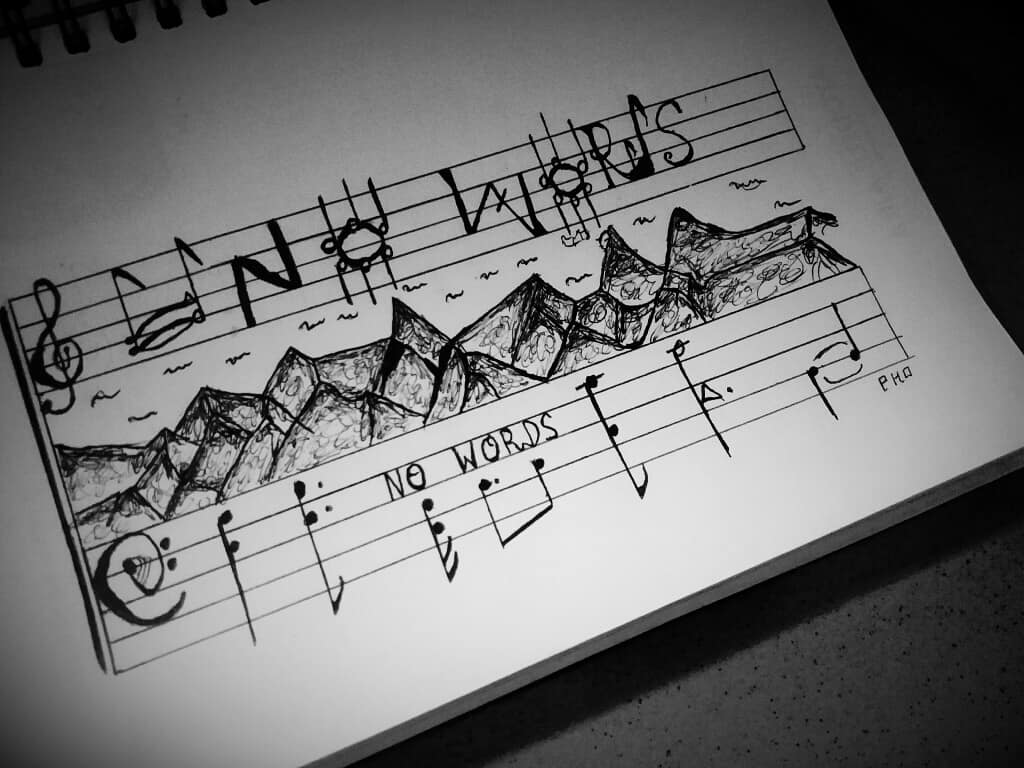 NO WORDS
NO WORDS
PHO